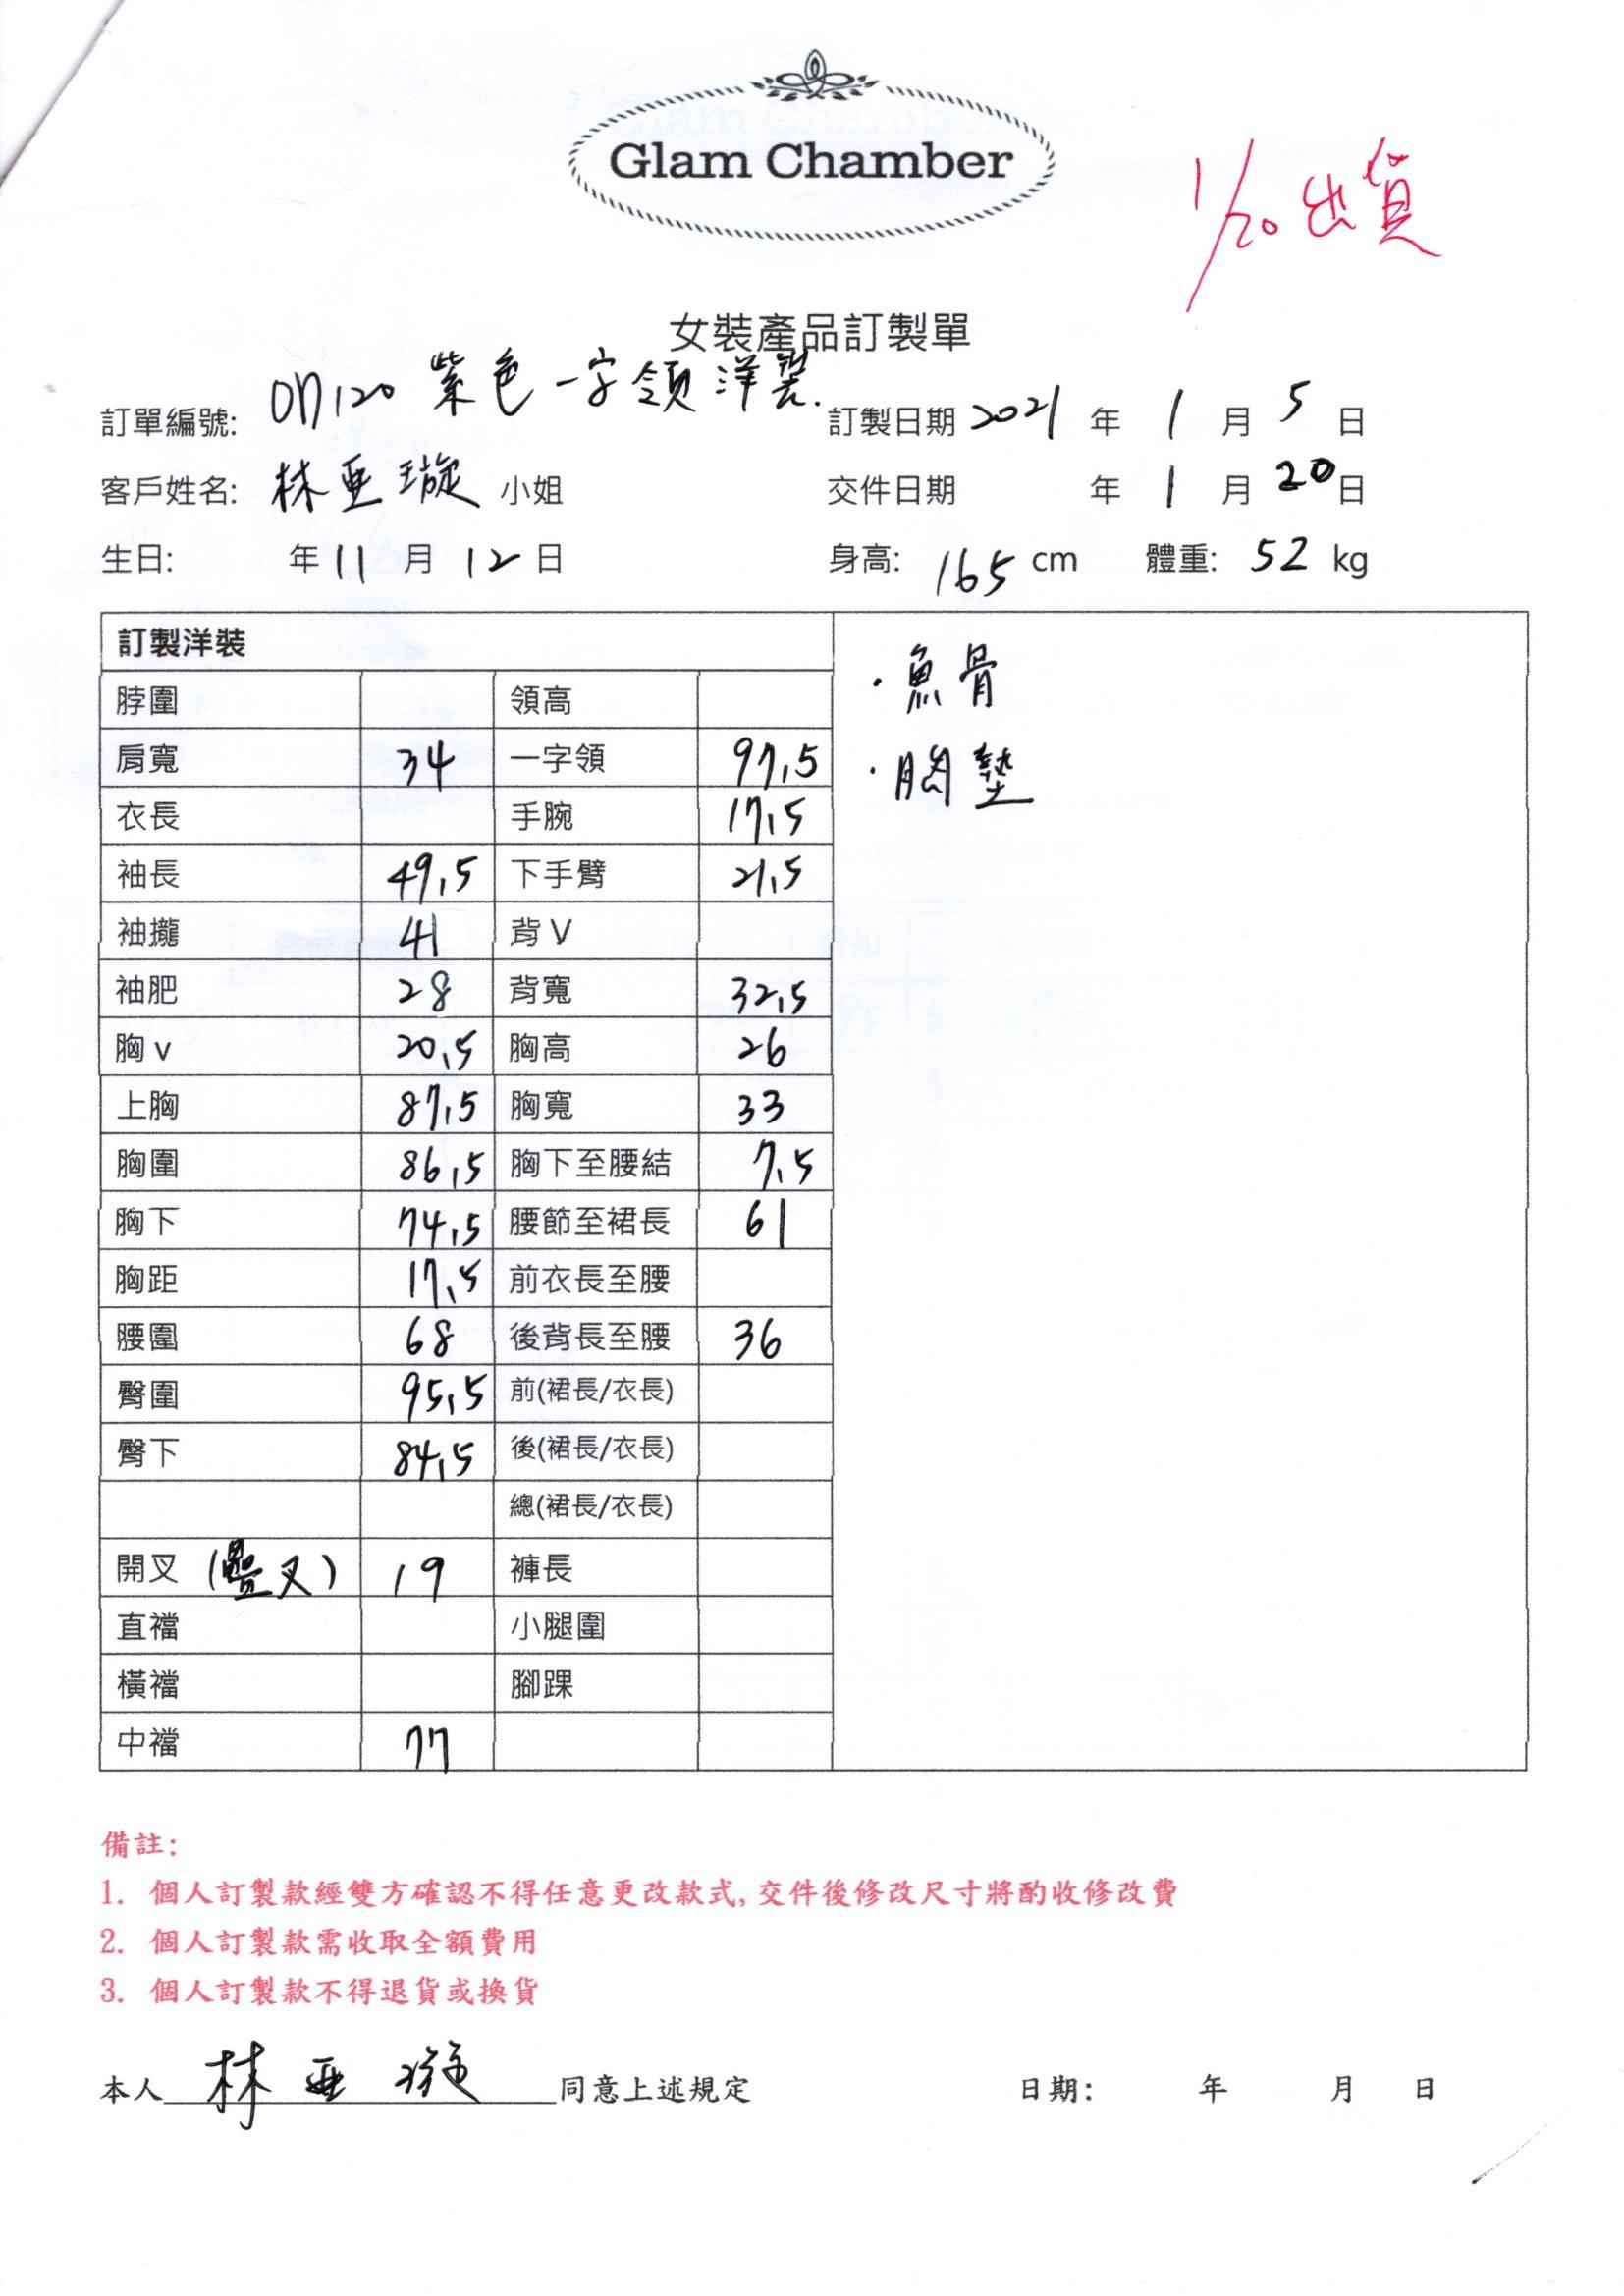 Glam Chamber
1/20 出貨
女裝產品訂製單
訂單編號: 07120 紫色一字領洋裝. 訂製日期 2021 年 1 月 5 日
客戶姓名: 林亜璇 小姐 交件日期 年 1 月 20 日
生日: 年 11 月 12 日 身高: 165 cm 體重: 52 kg
訂製洋裝
·魚骨
·胸墊
脖圍 領高
肩寬 34 一字領 97,5
衣長 手腕 17,5
袖長 49,5 下手臂 21,5
袖攏 41 背 V
袖肥 28 背寬 32,5
胸 v 20,5 胸高 26
上胸 87,5 胸寬 33
胸圍 86,5 胸下至腰結 7,5
胸下 74,5 腰節至裙長 61
胸距 17,5 前衣長至腰
腰圍 68 後背長至腰 36
臀圍 95,5 前(裙長/衣長)
臀下 84,5 後(裙長/衣長)
總(裙長/衣長)
開叉 (疊叉) 19 褲長
直襠 小腿圍
橫襠 腳踝
中襠 77
備註:
1. 個人訂製款經雙方確認不得任意更改款式, 交件後修改尺寸將酌收修改費
2. 個人訂製款需收取全額費用
3. 個人訂製款不得退貨或換貨
本人 林亜璇 同意上述規定 日期: 年 月 日